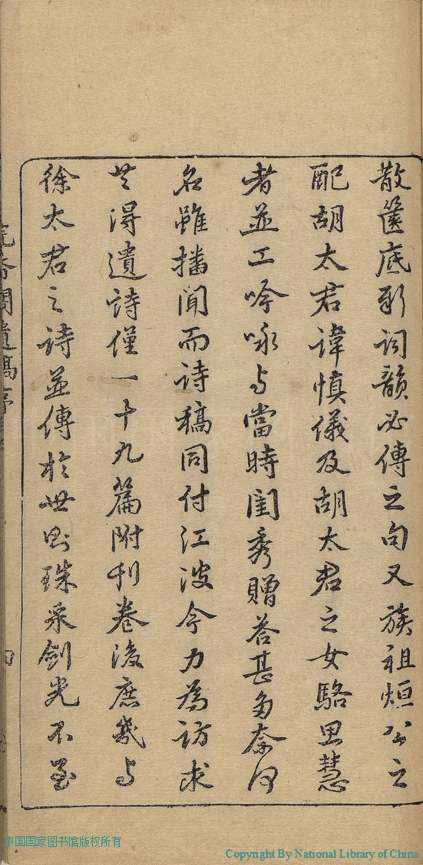 散篋底新詞韻必傳之句又族祖烜公之
配胡太君諱慎儀及胡太君之女駱思慧
者並工吟咏与當時閨秀贈答甚多奈何
名雖播聞而詩稿同付江波今力為訪求
共得遺詩僅一十九篇附刊卷後庶幾与
徐太君之詩並傳於世則珠采劍光不至
香閣遺稿序
中国国家图书馆版权所有
Copyright By National Library of China